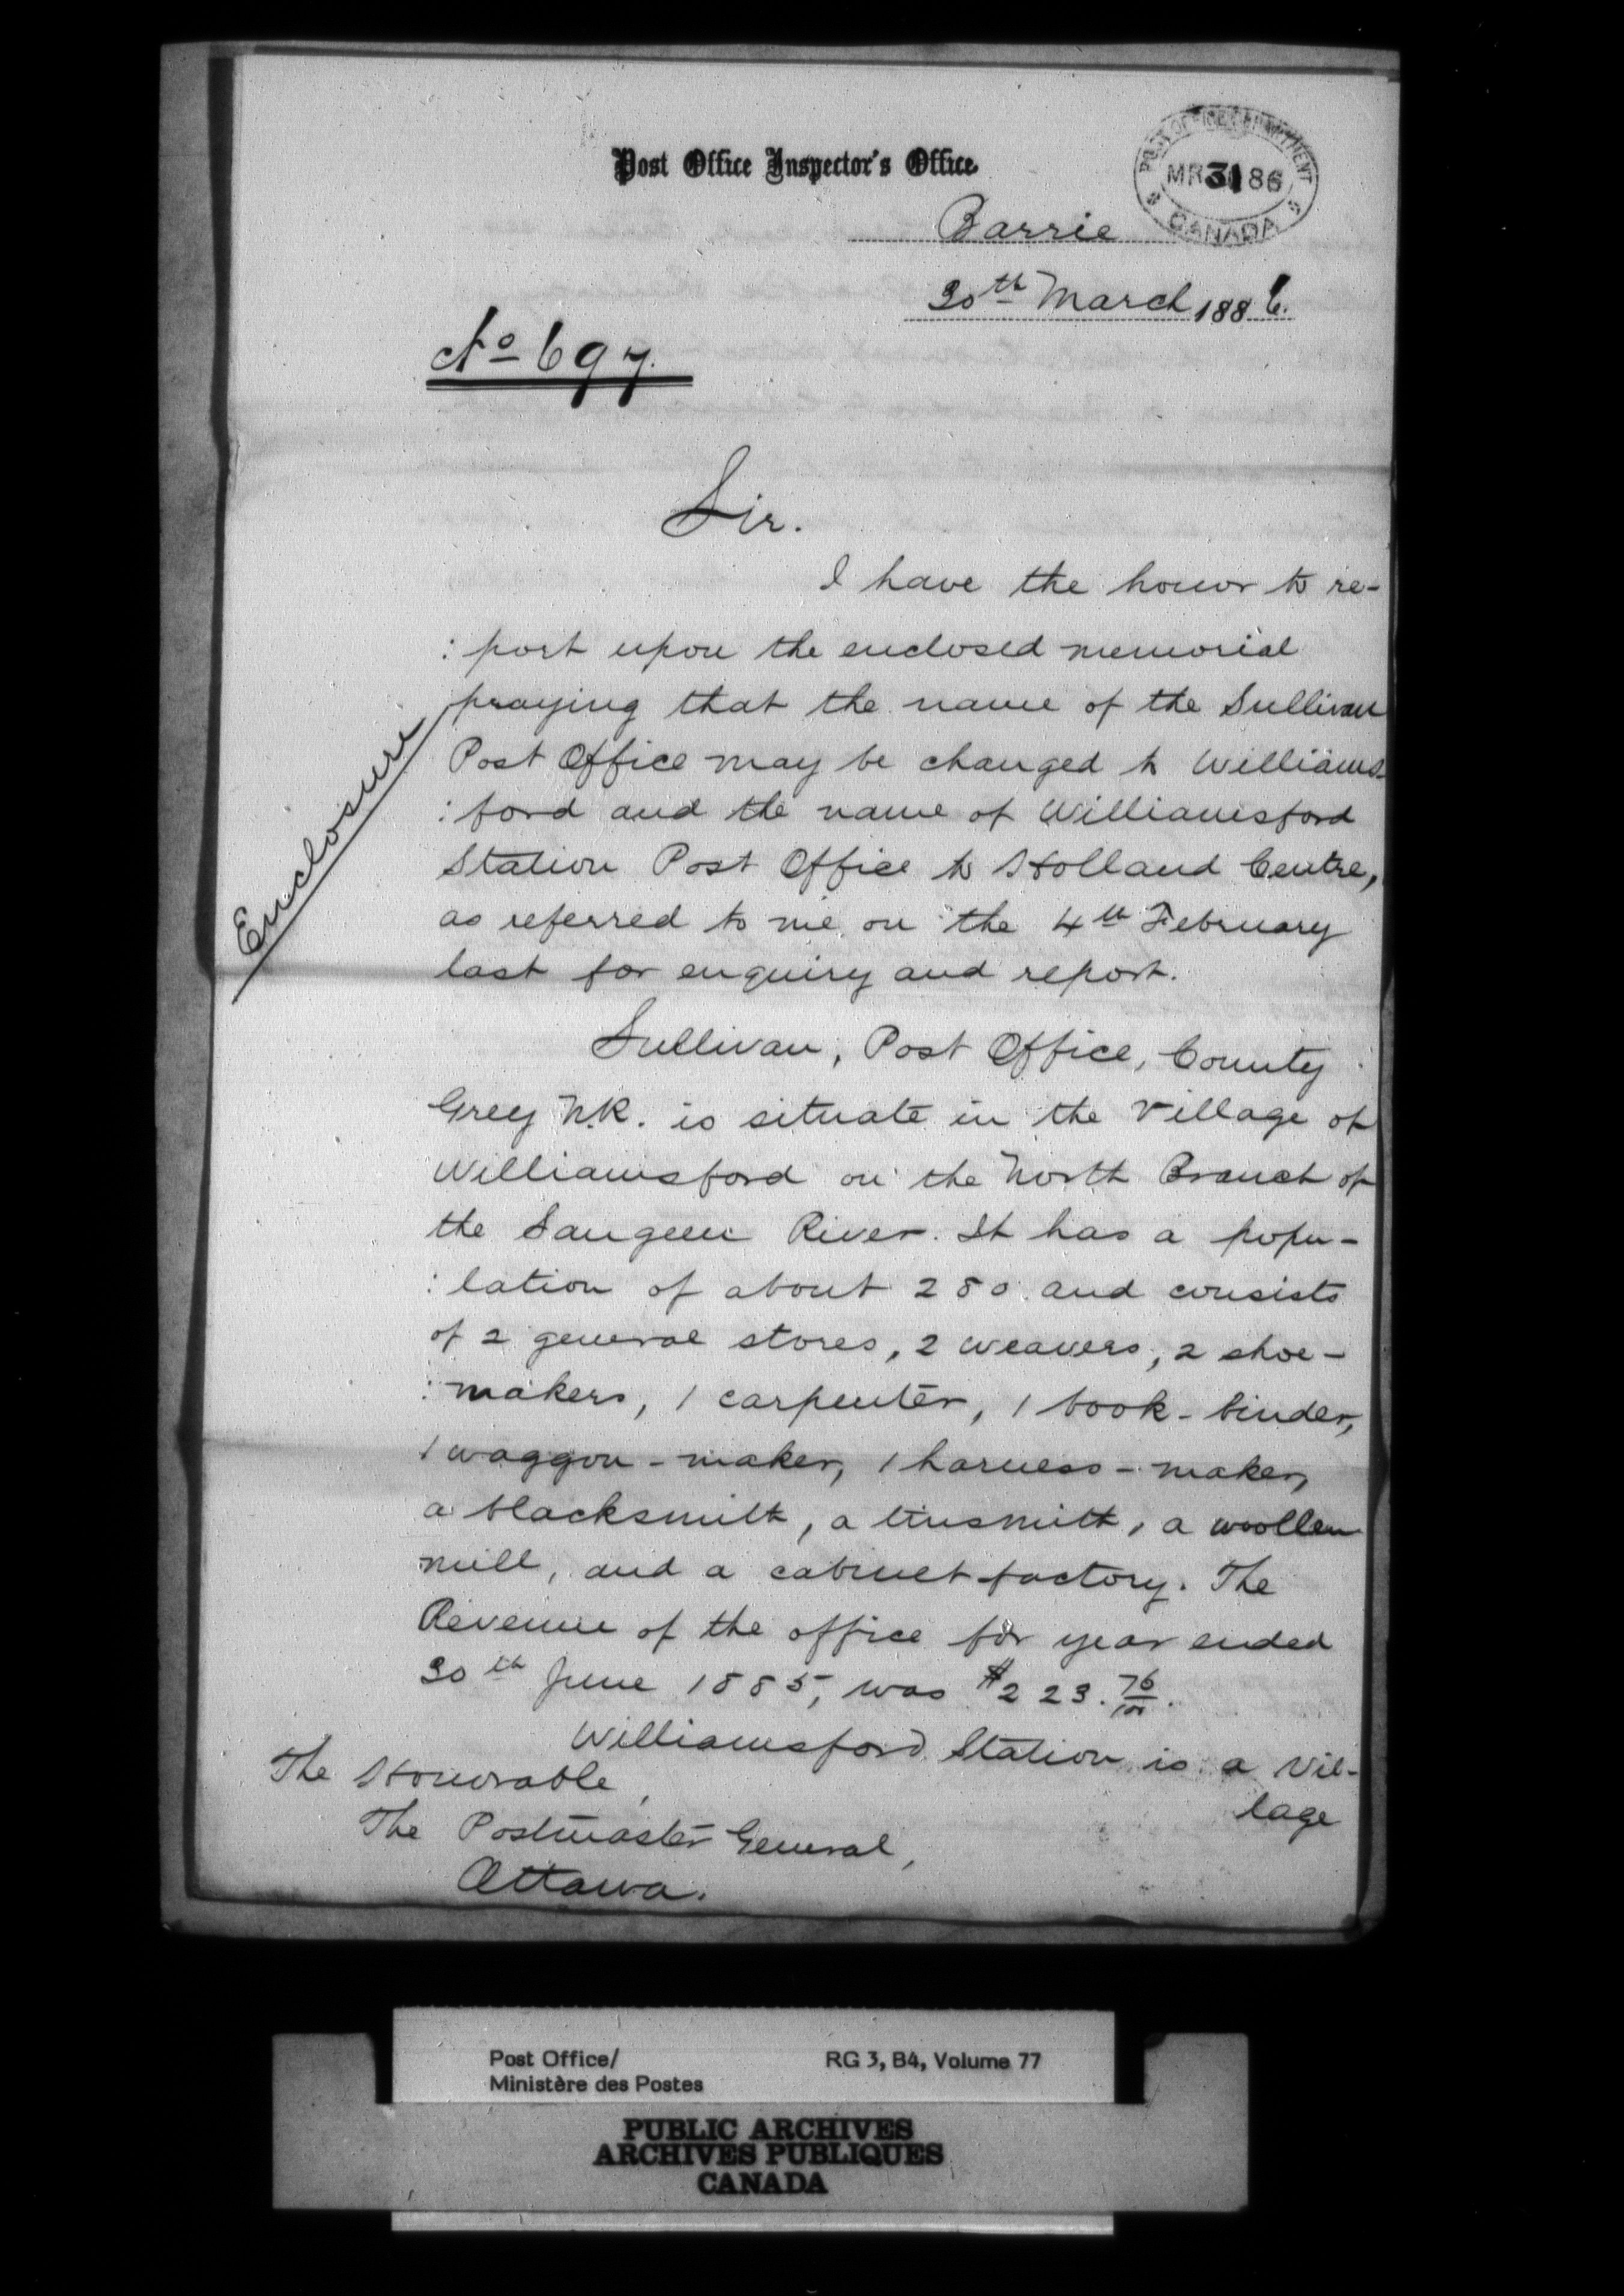 Post Office Inspector's Office.
POST OFFICE DEPARTMENT
MR 31 86
CANADA
Barrie
30th March 1886.
No 697.
Sir.
I have the honor to re-
: port upon the enclosed memorial
praying that the name of the Sullivan
Post Office may be changed to Williams-
: ford and the name of Williamsford
Station Post Office to Holland Centre,
as referred to me on the 4th February
last for enquiry and report.
Enclosure
Sullivan, Post Office, County
Grey N.R. is situate in the Village of
Williamsford on the North Branch of
the Saugeen River. It has a popu-
: lation of about 280 and consists
of 2 general stores, 2 weavers, 2 shoe-
: makers, 1 carpenter, 1 book-binder,
1 waggon-maker, 1 harness-maker,
a blacksmith, a tinsmith, a woollen
mill, and a cabinet factory. The
Revenue of the office for year ended
30th June 1885, was $223.76/100.
Williamsford Station is a Vil-
lage
The Honorable,
The Postmaster General,
Ottawa.
Post Office/ RG 3, B4, Volume 77
Ministère des Postes
PUBLIC ARCHIVES
ARCHIVES PUBLIQUES
CANADA